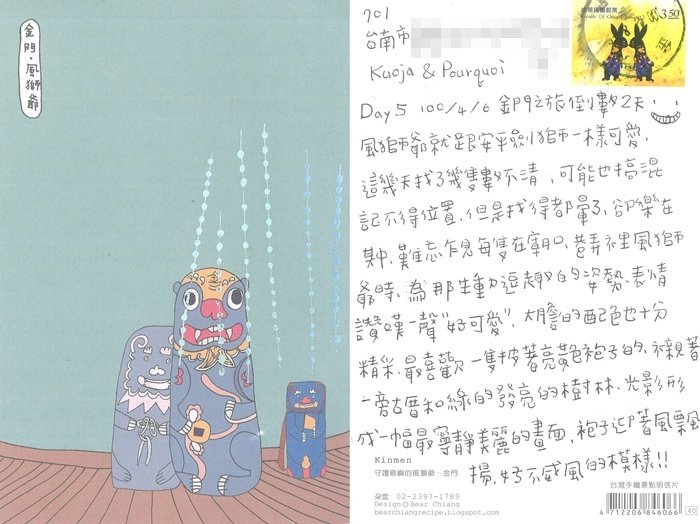 金門・風獅爺
701
台南市
Kuoja & Pourquoi
中華民國郵票
Republic Of China
3.50
Day 5 100/4/6 金門之旅倒數2天
風獅爺就跟安平劍獅一樣可愛,
這幾天找了幾隻數不清,可能也搞混
記不得位置,但是找得都暈了,卻樂在
其中,難忘乍見每隻在廟口、巷弄裡風獅
爺時,為那生動逗趣的姿勢、表情
讚嘆一聲"好可愛",大膽的配色也十分
精采,最喜歡一隻披著亮黃色袍子的,襯著
一旁古厝和綠的發亮的樹林,光影形
成一幅最寧靜美麗的畫面,袍子迎著風飄
揚,好不威風的模樣!!
Kinmen
守護島嶼的風獅爺‧金門
朵雲 02-2397-1789
Design©Bear Chiang
bearchiangrecipe.blogspot.com
台灣手繪景點明信片
4 712206 846066
40